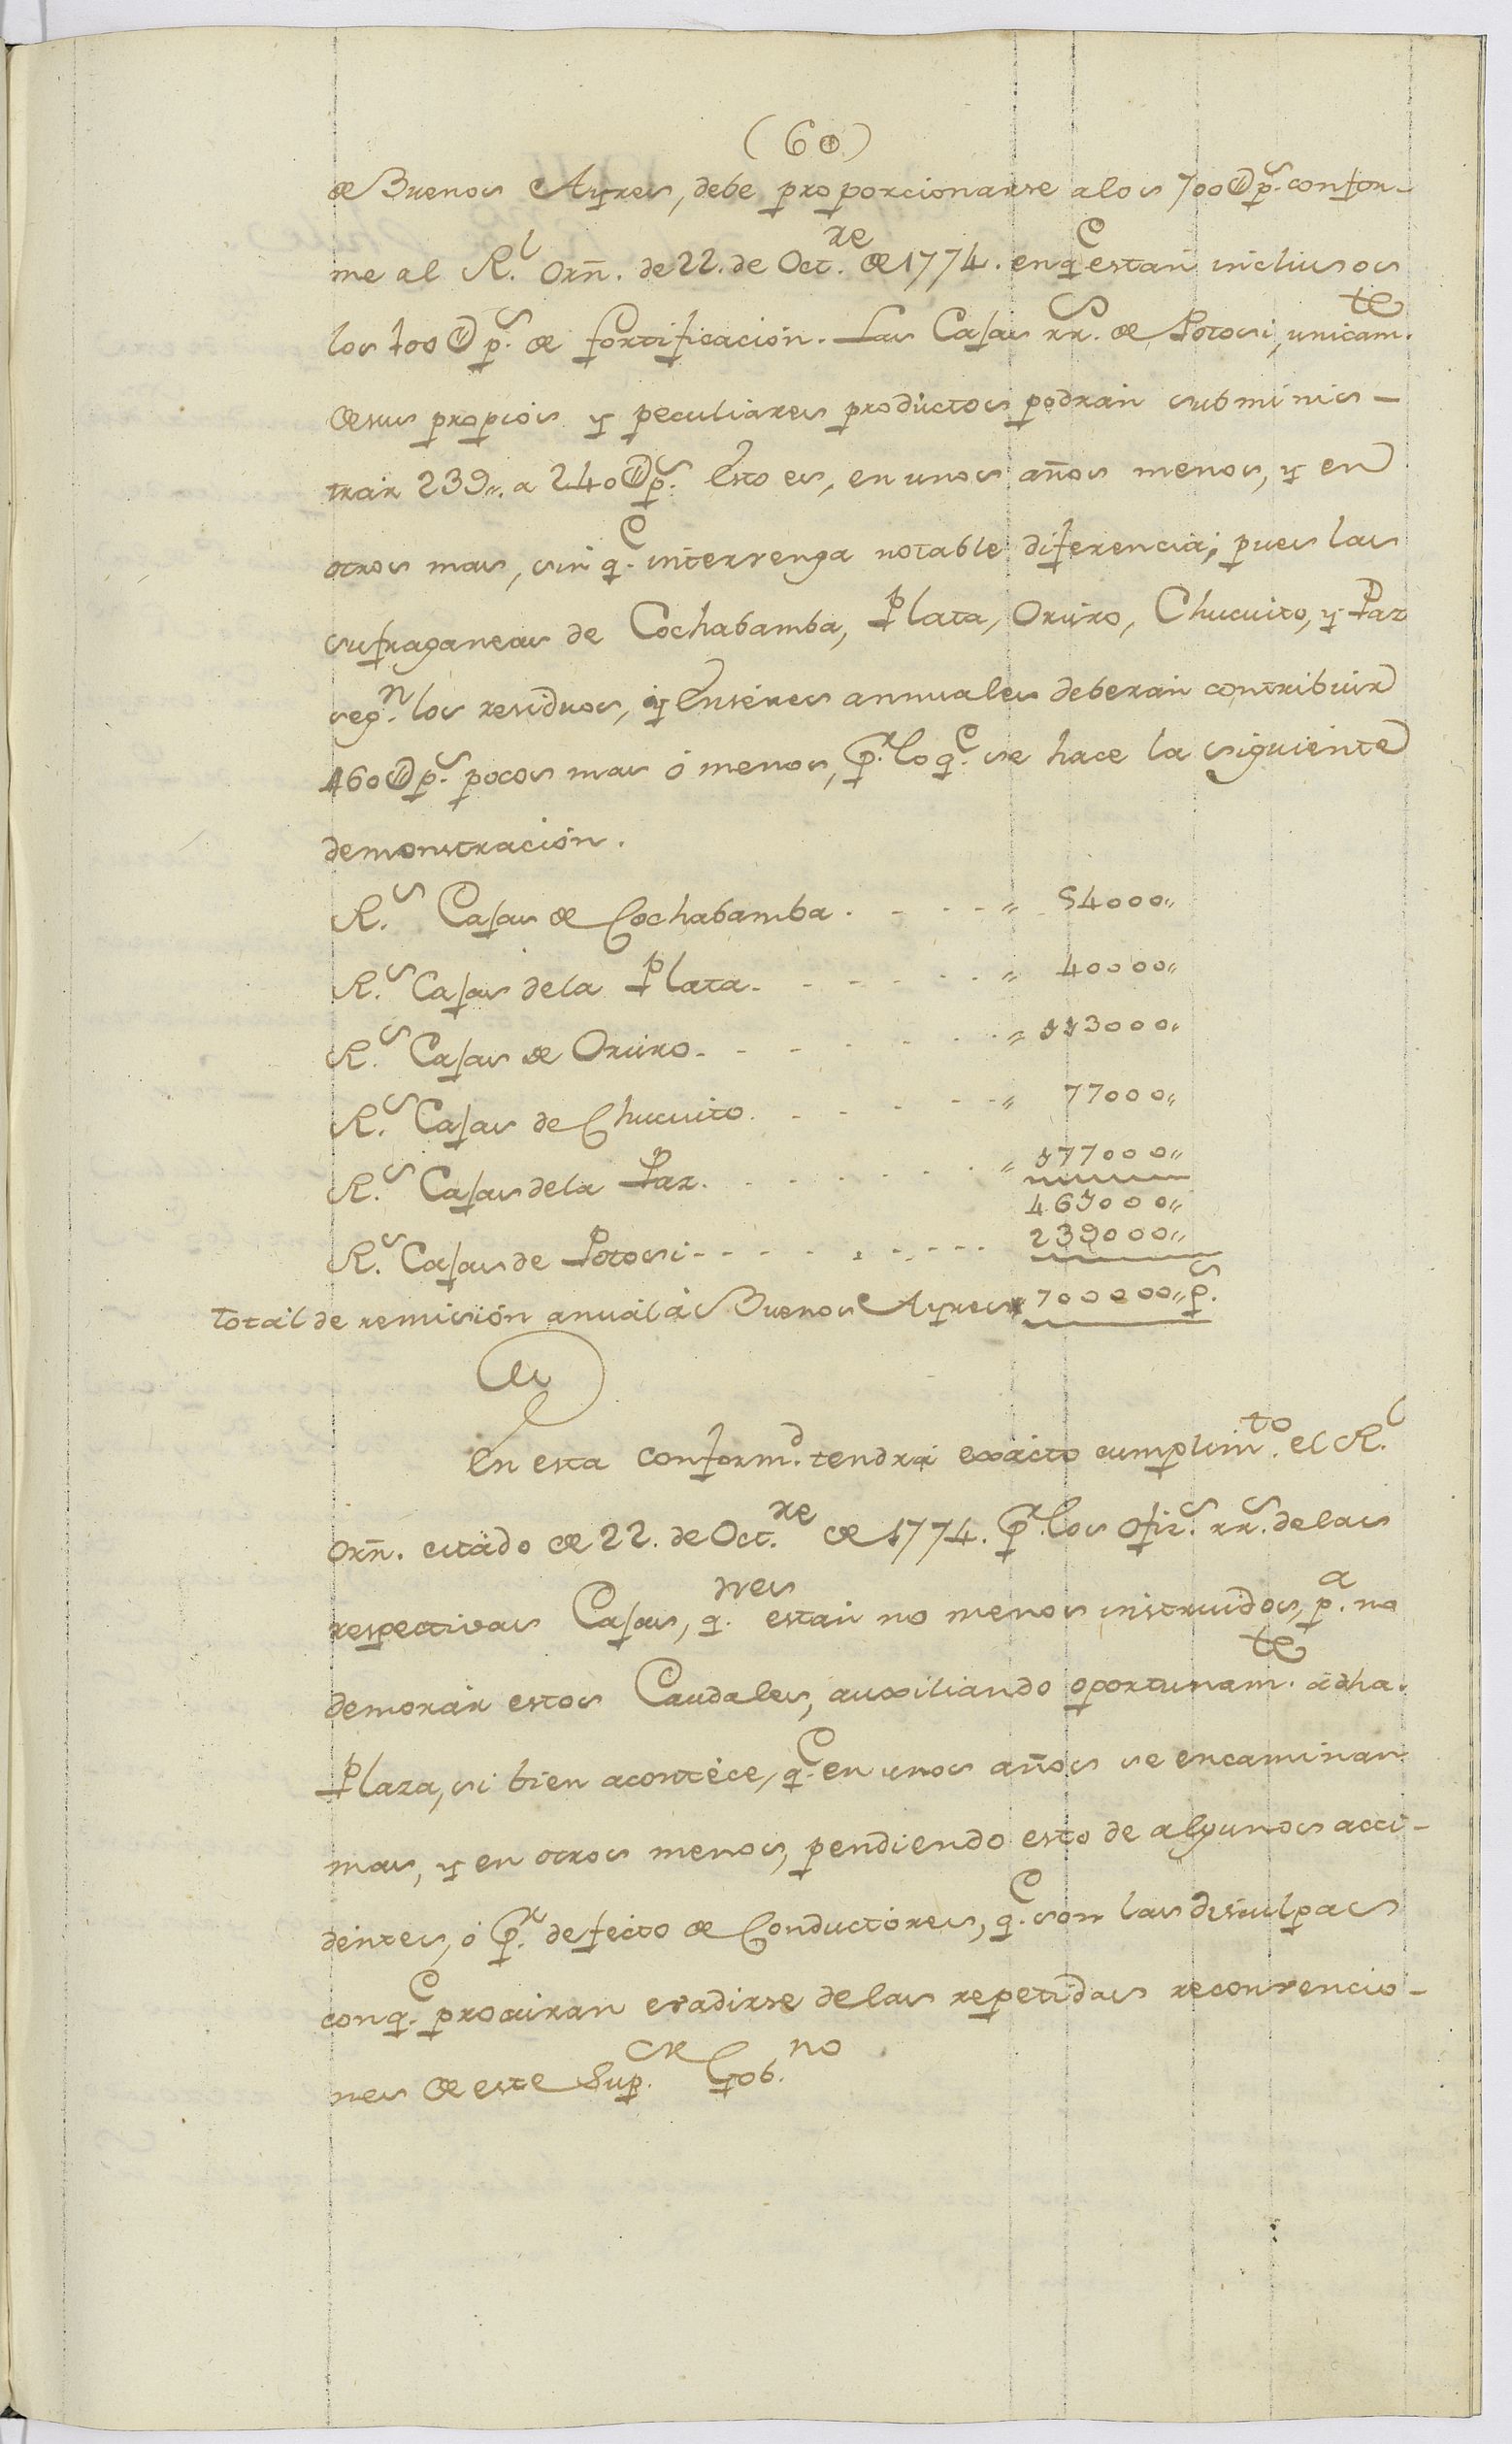 (60)
de Buenos Ayres, debe proporcionarse alos 700@ p.s confor-
me al R.l Orñ. de 22. de Oct.re de 1774. enq.e estan inclusos
los 100@ p.s de fortificacion. Las Cajas rr.s de Potosi, unicam.te
desus propios y peculiares productos podran subminis-
trar 239,, a 240@ p.s Esto es, en unos años menos, y en
otros mas, sin q.e intervenga notable diferencia; pues las
sufraganeas de Cochabamba, Plata, Oruro, Chucuito, y Paz
seg.n los residuos, y Enséres annuales deberan contribuir
460@ p.s pocos mas ó menos, p.r lo q.e se hace la siguiente
demonstracion.
R.s Cajas de Cochabamba. - - - - ,, 54000,,
R.s Cajas dela Plata. - - - - - - ,, 40000,,
R.s Cajas de Oruro. - - - - - - - ,, 113000,,
R.s Cajas de Chucuito. - - - - - ,, 77000,,
R.s Cajas dela Paz. - - - - - - ,, 177000,,
461000,,
R.s Cajas de Potosi - - - - - - - - - 239000,,
Total de remision anual á Buenos Ayres ,, 700000,, p.s
En esta conform.d tendra exácto cumplim.to el R.l
Orñ. citado de 22. de Oct.re de 1774. p.r los Ofiz.s rr.s delas
respectivas Cajas, q.nes estan no menos instruidos, p.a no
demorar estos Caudales, auxiliando oportunam.te ádha.
Plaza, si bien acontéce, q.e en unos años se encaminan
mas, y en otros menos, pendiendo esto de algunos acci-
dentes, ó p.r defecto de Conductóres, q.e son las disculpas
conq.e procuran evadirse delas repetidas reconvencio-
nes de este Sup.or Gob.no